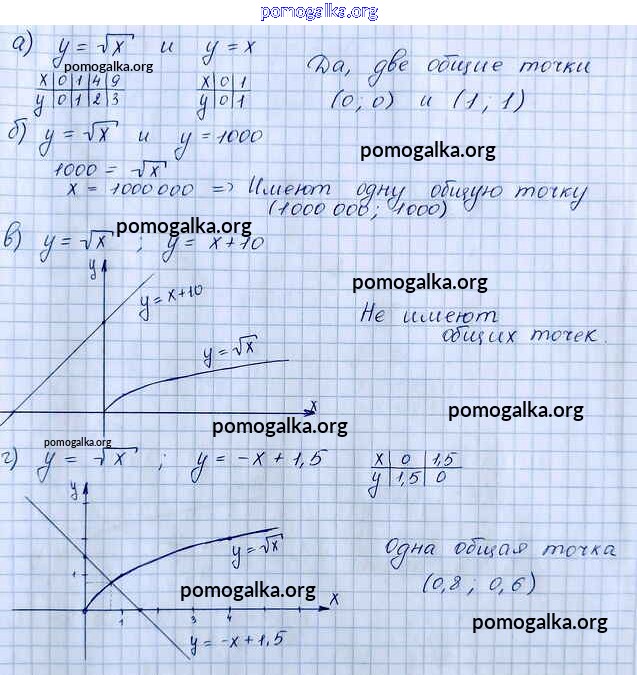 pomogalka.org
а) y = √x и y = x
pomogalka.org
x 0 1 4 9
y 0 1 2 3
x 0 1
y 0 1
Да, две общие точки
(0; 0) и (1; 1)
б) y = √x и y = 1000
pomogalka.org
1000 = √x
x = 1000000 => Имеют одну общую точку
(1000 000; 1000)
pomogalka.org
в) y = √x ; y = x+10
y
y = x+10
pomogalka.org
Не имеют
общих точек.
y = √x
x
pomogalka.org
pomogalka.org
pomogalka.org
г) y = √x ; y = -x + 1,5
x 0 1,5
y 1,5 0
y
y = √x
Одна общая точка
(0,8 ; 0,6)
1
pomogalka.org
x
1 3 4
pomogalka.org
y = -x + 1,5